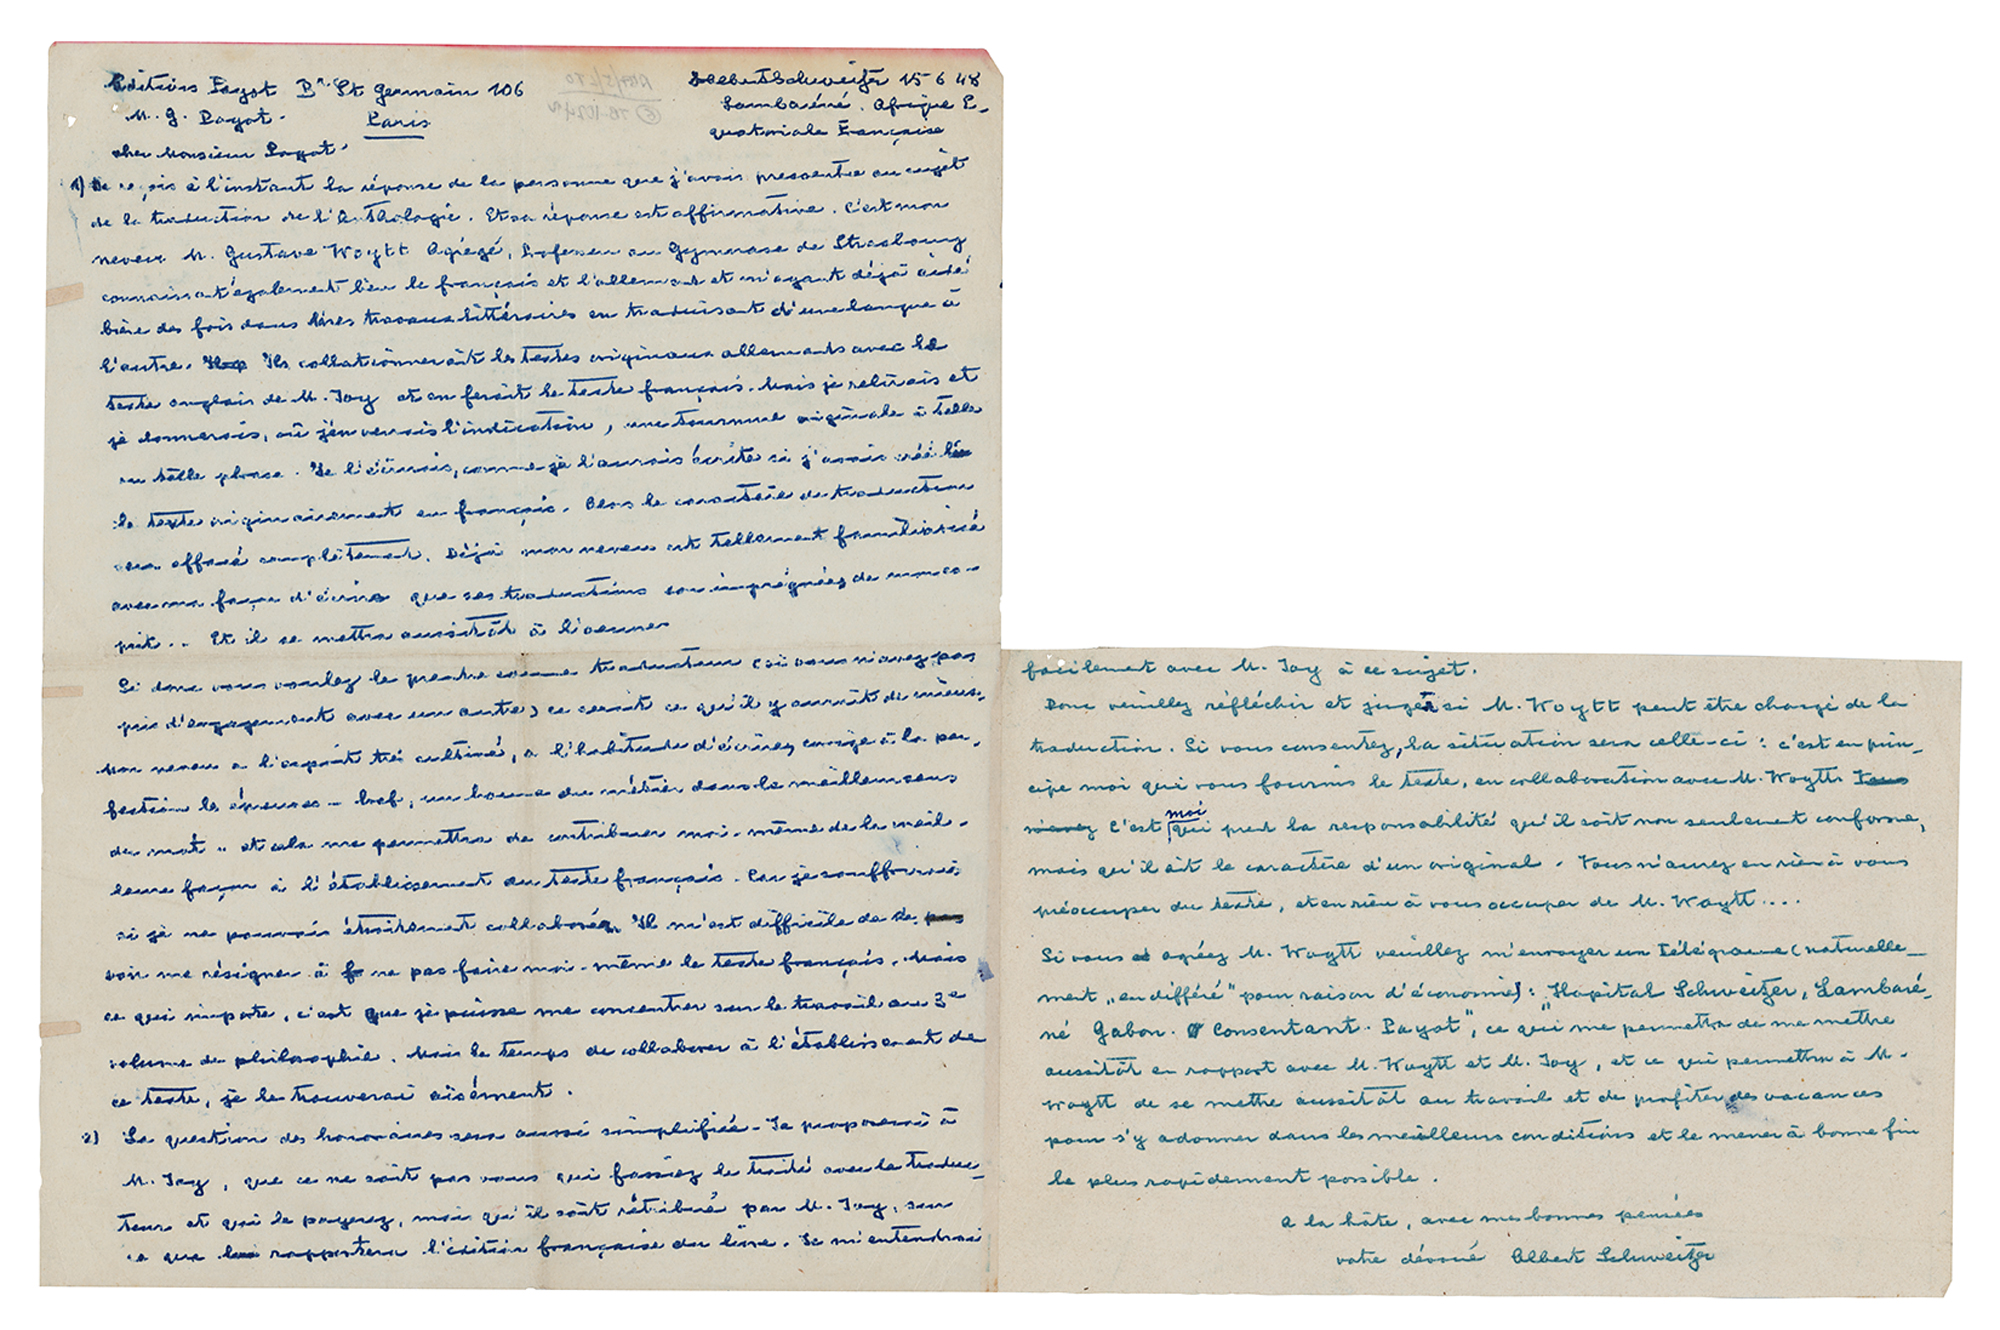 Editions Payot Bd St Germain 106
M. G. Payot. Paris
Albert Schweitzer 15 6 48
Lambaréné. Afrique E-
quatoriale Française
cher Monsieur Payot.
1) Je reçois à l'instant la réponse de la personne que j'avais pressentie au sujet
de la traduction de l'Anthologie. Et sa réponse est affirmative. C'est mon
neveu M. Gustave Woytt Agrégé, Professeur au Gymnase de Strasbourg
connaissant également bien le français et l'allemand et m'ayant déjà aidé
bien des fois dans mes travaux littéraires en traduisant d'une langue à
l'autre. Il collationnerait les textes originaux allemands avec le
texte anglais de M. Joy et en ferait le texte français. Mais je relirais et
je donnerais, où j'en verrais l'indication, une tournure originale à telle
ou telle phrase. Je l'écrirais, comme je l'aurais écrite si j'avais créé
le texte originairement en français. Alors le caractère de traduction
sera effacé complètement. Déjà mon neveu est tellement familiarisé
avec ma façon d'écrire que ses traductions sont imprégnées de mon es-
prit.. Et il se mettra aussitôt à l'oeuvre
Si donc vous voulez le prendre comme traducteur (si vous n'avez pas
pris d'engagement avec un autre) ce serait ce qu'il y aurait de mieux.
Mon neveu a l'esprit très cultivé, a l'habitude d'écrire, corrige à la per-
fection les épreuves – bref, un homme du métier dans le meilleur sens
du mot " et cela me permettra de contribuer moi-même de la meil-
leure façon à l'établissement du texte français. Car je souffrirais
si je ne pouvais étroitement collaborer. Il m'est difficile de
voir me résigner à ne pas faire moi-même le texte français. Mais
ce qui importe, c'est que je puisse me concentrer sur le travail au 3e
volume de philosophie. Mais le temps de collaborer à l'établissement de
ce texte, je le trouverai aisément.
2) La question des honoraires sera aussi simplifiée – Je proposerai à
M. Joy, que ce ne soit pas vous qui fassiez le traité avec le traduc-
teur et qui le payerez, mais qu'il soit rétribué par M. Joy, sur
ce que lui rapportera l'édition française du livre. Je m'entendrai
facilement avec M. Joy à ce sujet.
Donc veuillez réfléchir et juger si M. Woytt peut être chargé de la
traduction. Si vous consentez, la situation sera celle-ci : c'est en prin-
cipe moi qui vous fournis le texte, en collaboration avec M. Woytt. Vous
n'avez C'est moi qui prend la responsabilité qu'il soit non seulement conforme,
mais qu'il ait le caractère d'un original. Vous n'aurez en rien à vous
préoccuper du texte, et en rien à vous occuper de M. Woytt....
Si vous agréez M. Woytt veuillez m'envoyer un télégramme (naturelle-
ment „en différé" pour raison d'économie) : „Hopital Schweitzer, Lambaré-
né Gabon. Consentant. Payot", ce qui me permettra de me mettre
aussitôt en rapport avec M. Woytt et M. Joy, et ce qui permettra à M.
Woytt de se mettre aussitôt au travail et de profiter des vacances
pour s'y adonner dans les meilleurs conditions et le mener à bonne fin
le plus rapidement possible.
A la hâte, avec mes bonnes pensées
votre dévoué Albert Schweitzer